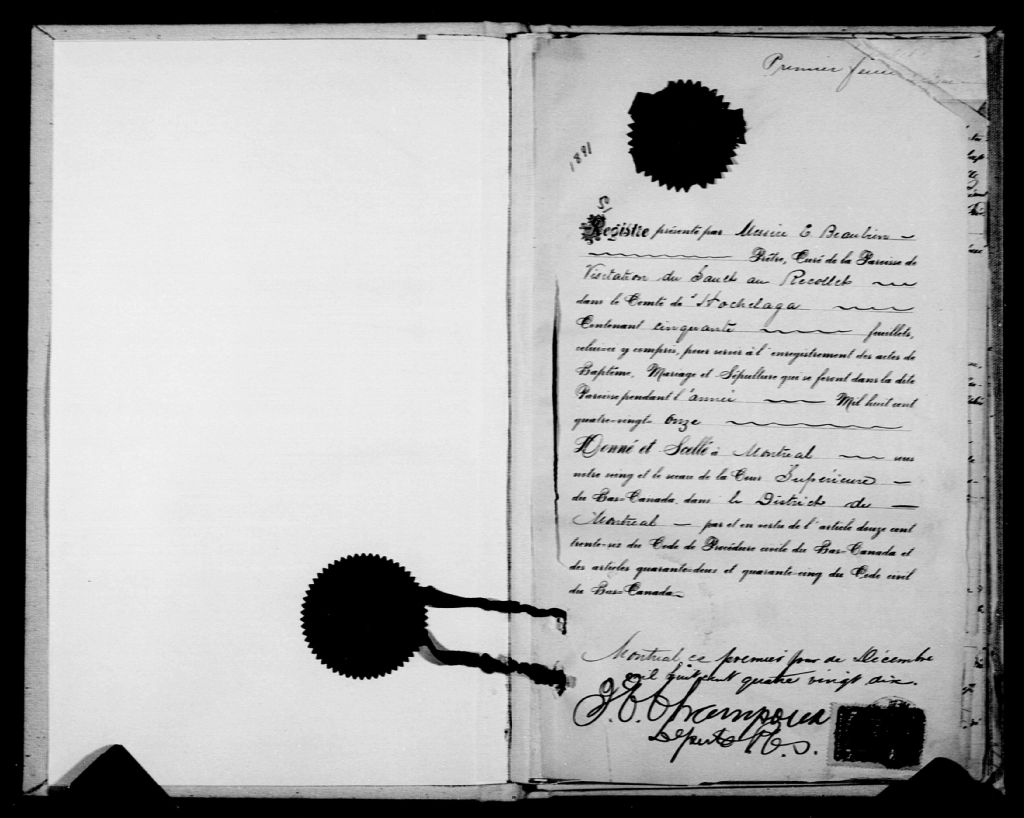 Premier
1891
Registre présenté par Messire E Beaubien
Prêtre, Curé de la Paroisse de
Visitation du Sault au Recollet
dans le Comté de Hochelaga
Contenant cinquante feuillets,
celui-ci y compris, pour servir à l'enregistrement des actes de
Baptême, Mariage et Sépulture qui se feront dans la dite
Paroisse pendant l'année Mil huit cent
quatre-vingt onze
Donné et Scellé à Montreal sous
notre seing et le sceau de la Cour Supérieure
du Bas-Canada, dans le District de
Montreal par et en vertu de l'article douze cent
trente-six du Code de Procédure civile du Bas-Canada et
des articles quarante-deux et quarante-cinq du Code civil
du Bas-Canada
Montreal, ce premier jour de Décembre
mil huit cent quatre vingt dix.
J. E. Champoux
Député P. C. S.